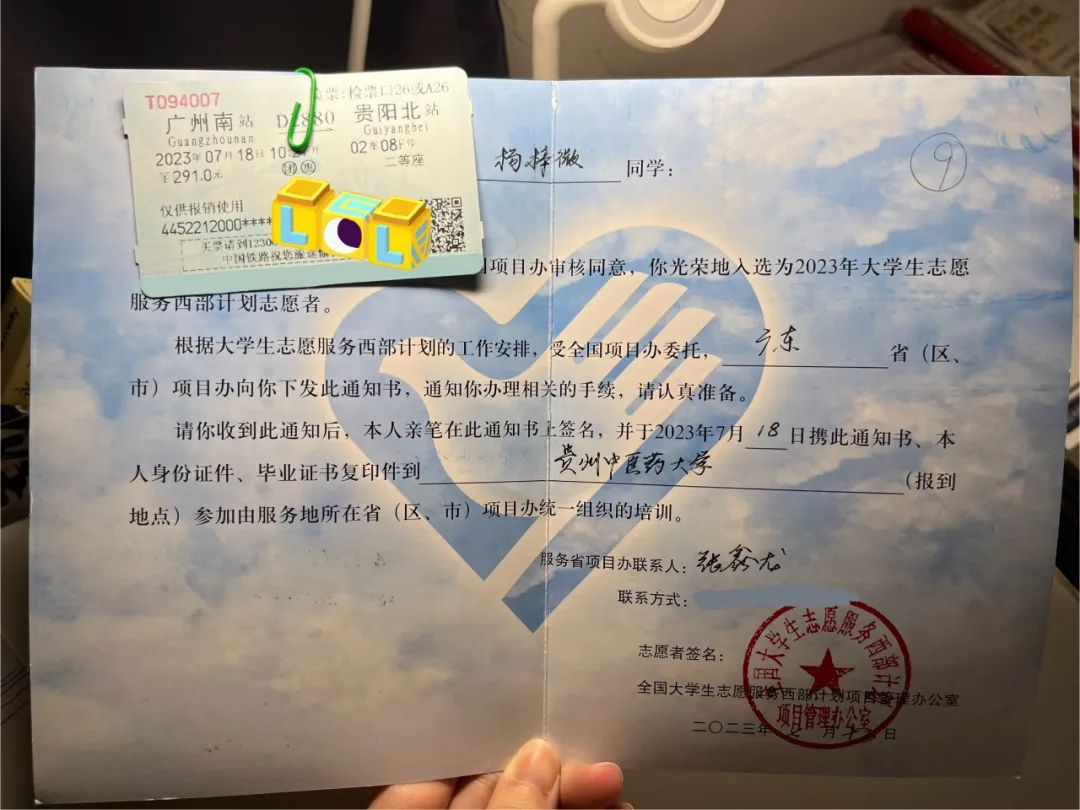 T094007
检票:检票口26或A26
广州南站
贵阳北站
Guangzhounan
Guiyangbei
2023年07月18日
02车08F号
¥291.0元
团 惠
二等座
仅供报销使用
4452212000****
中国铁路祝您旅途愉
LOL
杨梓微 同学:
9
项目办审核同意,你光荣地入选为2023年大学生志愿
服务西部计划志愿者。
根据大学生志愿服务西部计划的工作安排,受全国项目办委托,广东省(区、
市)项目办向你下发此通知书,通知你办理相关的手续,请认真准备。
请你收到此通知后,本人亲笔在此通知书上签名,并于2023年7月18日携此通知书、本
人身份证件、毕业证书复印件到贵州中医药大学(报到
地点)参加由服务地所在省(区、市)项目办统一组织的培训。
服务省项目办联系人:张鑫龙
联系方式:
志愿者签名:
全国大学生志愿服务西部计划项目管理办公室
二〇二三年七月十日
全国大学生志愿服务西部计划
项目管理办公室